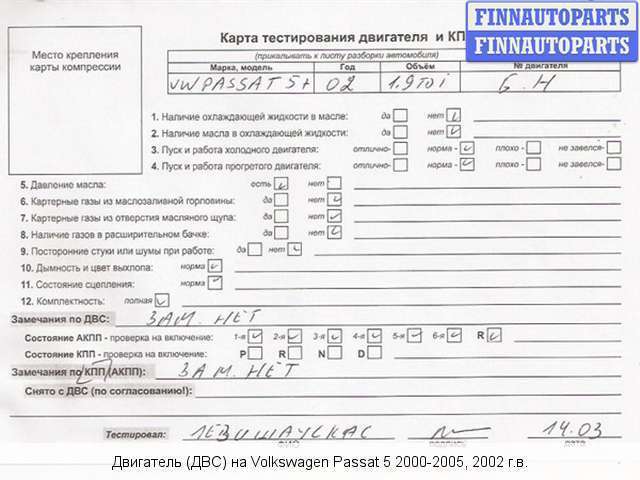 Карта тестирования двигателя и КП
FINNAUTOPARTS
FINNAUTOPARTS
Место крепления
карты компрессии
(прикалывать к листу разборки автомобиля)
Марка, модель Год Объём № двигателя
VW PASSAT 5+ 02 1.9 TDI
1. Наличие охлаждающей жидкости в масле: да нет
2. Наличие масла в охлаждающей жидкости: да нет
3. Пуск и работа холодного двигателя: отлично- норма - плохо - не завелся-
4. Пуск и работа прогретого двигателя: отлично- норма - плохо - не завелся-
5. Давление масла: есть нет
6. Картерные газы из маслозаливной горловины: да нет
7. Картерные газы из отверстия масляного щупа: да нет
8. Наличие газов в расширительном бачке: да нет
9. Посторонние стуки или шумы при работе: да нет
10. Дымность и цвет выхлопа: норма
11. Состояние сцепления: норма
12. Комплектность: полная
Замечания по ДВС: ЗАМ. НЕТ
Состояние АКПП - проверка на включение: 1-я 2-я 3-я 4-я 5-я 6-я R
Состояние КПП - проверка на включение: P R N D
Замечания по КПП (АКПП): ЗАМ. НЕТ
Снято с ДВС (по согласованию!):
Тестировал: ЛЕВИШАУСКАС 14.03
ФИО подпись дата
Двигатель (ДВС) на Volkswagen Passat 5 2000-2005, 2002 г.в.